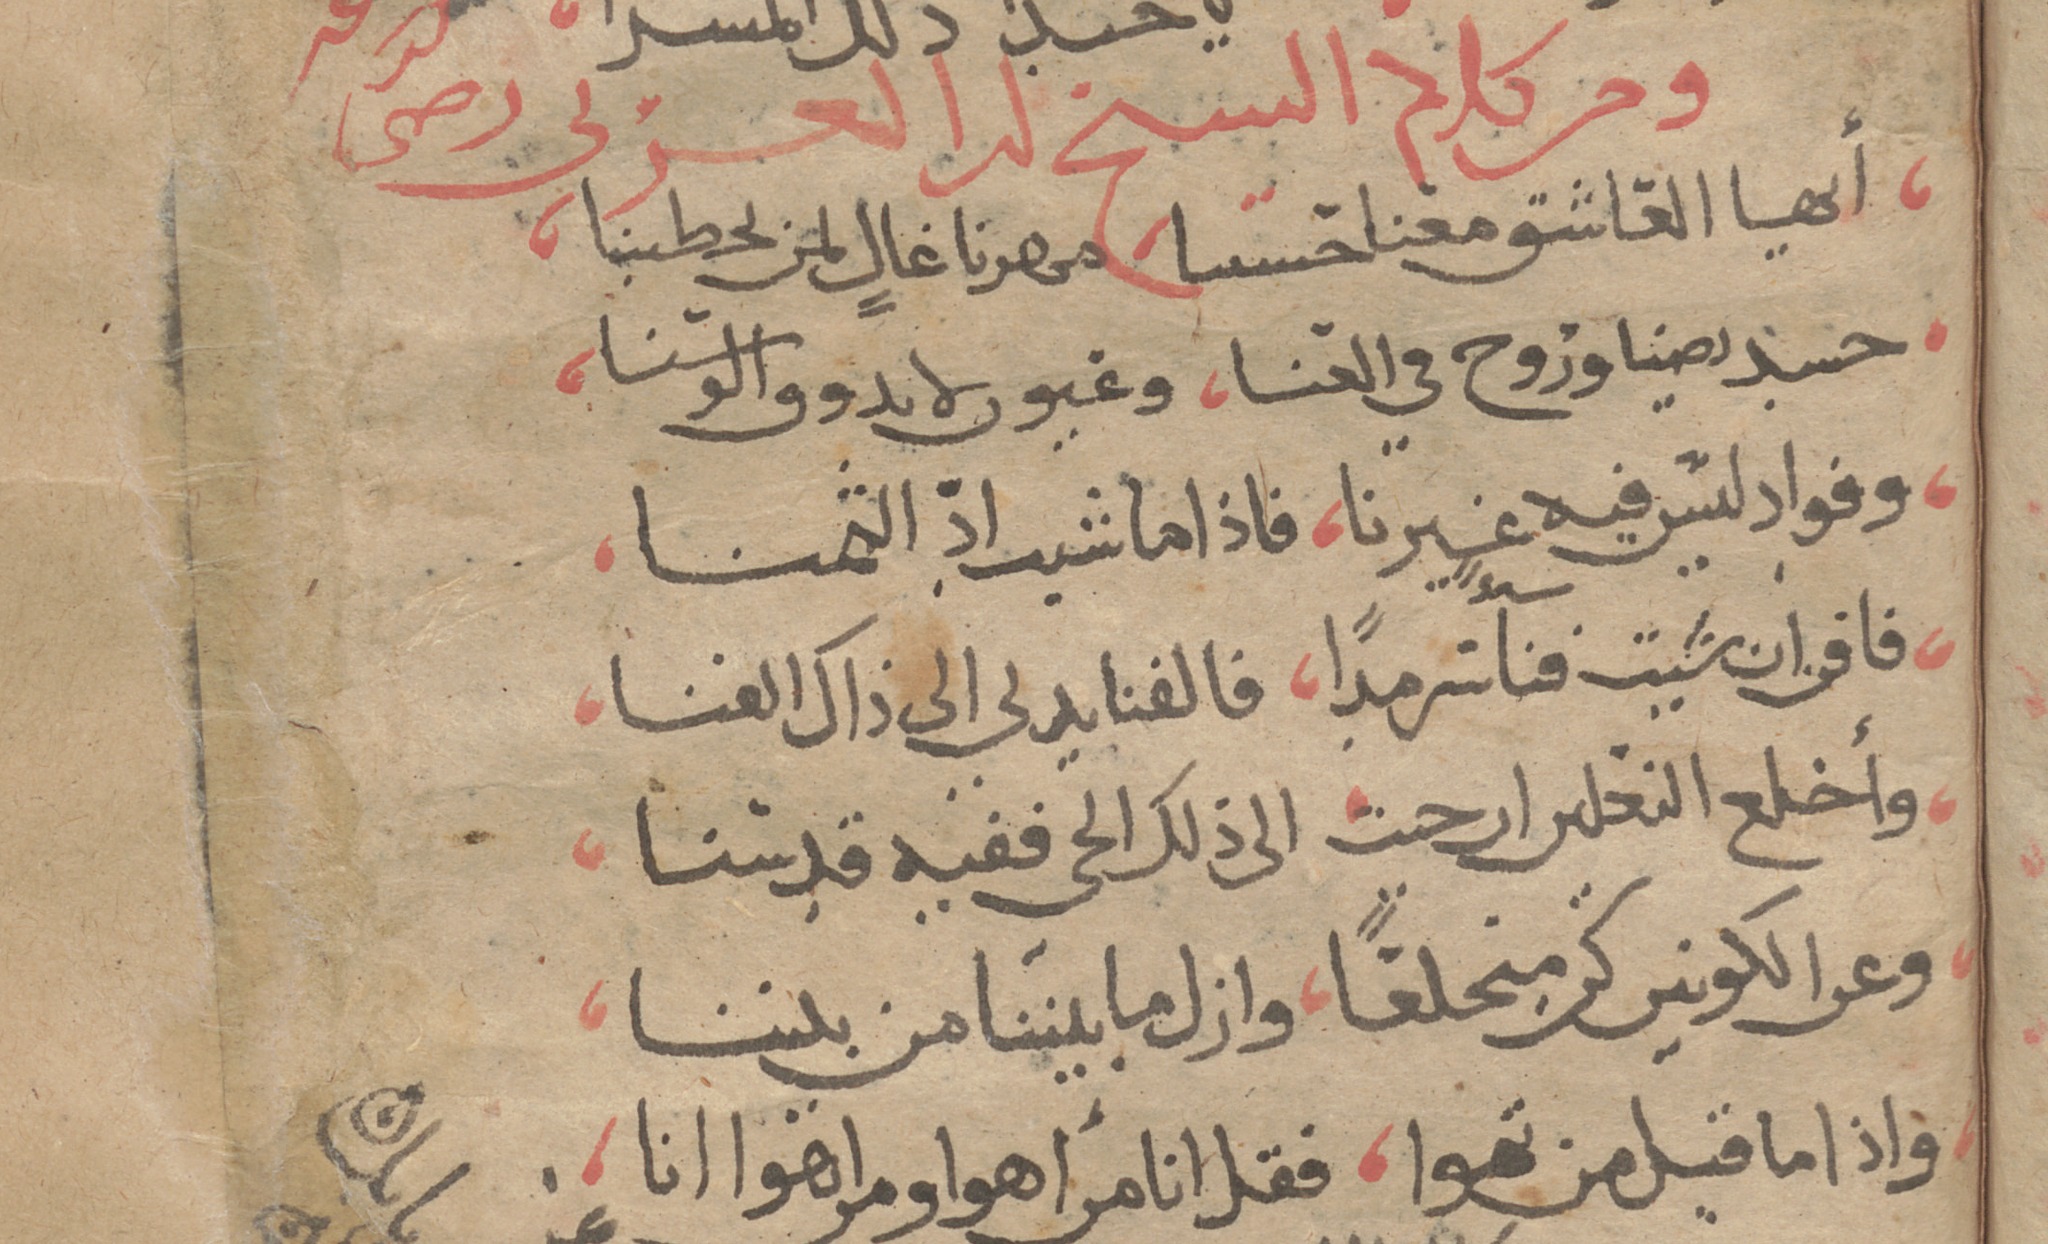 حسبد ذلك المسرا
ومن كلام الشيخ ابن العربي رضي
أيهيا العاشق معنا حسننا مهرنا غالٍ لمن يخطبنا
جسد مضنا وروح في العنا، وغيون لا تدوق الوسنا
وفواد ليس فيه غيرنا، فاذا ما شيت ادّ الثمنا
فافن ان شيت فناً سرمدًا، فالفنا يدلي الى ذاك الفنا
وأخلع النعلين ان جيت الى ذلك الحي ففيه قدسنا
وعن الكونين كن منخلعًا، وازل ما بيننا من بيننا
واذا ما قيل من تهوا، فقل انا من أهوا ومن اهوا انا